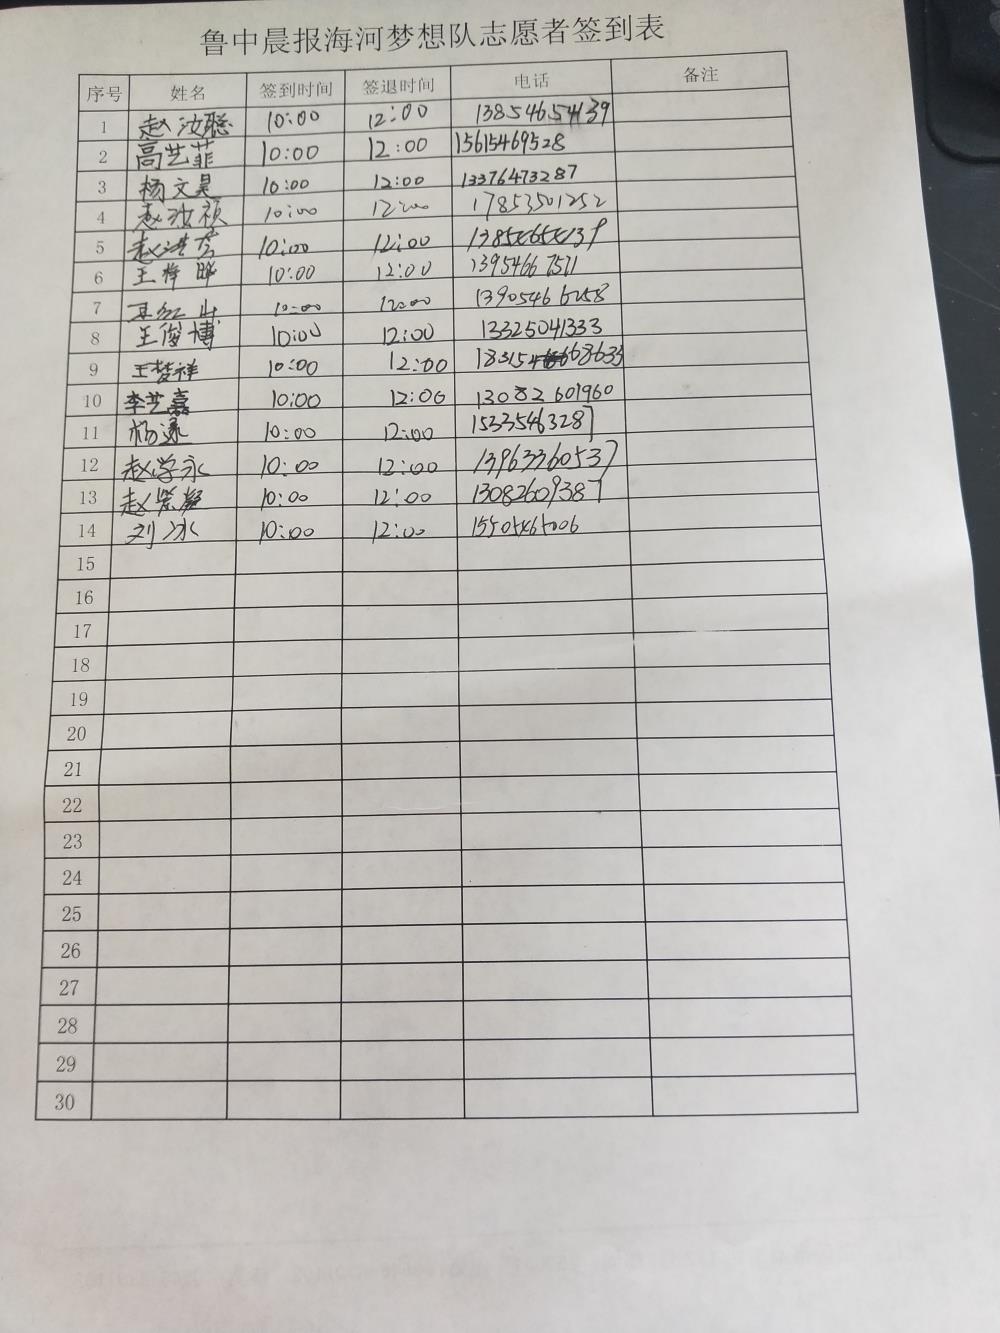 鲁中晨报海河梦想队志愿者签到表
序号 姓名 签到时间 签退时间 电话 备注
1 赵汝聪 10:00 12:00 13854654139
2 高艺菲 10:00 12:00 15615469528
3 杨文昊 10:00 12:00 13376473287
4 赵汝祯 10:00 12:00 17853501252
5 赵洪彦 10:00 12:00
6 王梓晔 10:00 12:00 13954667511
7 10:00 12:00 13905466258
8 王俊博 10:00 12:00 13325041333
9 王梦祥 10:00 12:00
10 李艺嘉 10:00 12:00 13082601960
11 杨 10:00 12:00 15335463287
12 赵学永 10:00 12:00 13963360537
13 赵紫凝 10:00 12:00 13082609387
14 刘冰 10:00 12:00 15505465006
15
16
17
18
19
20
21
22
23
24
25
26
27
28
29
30